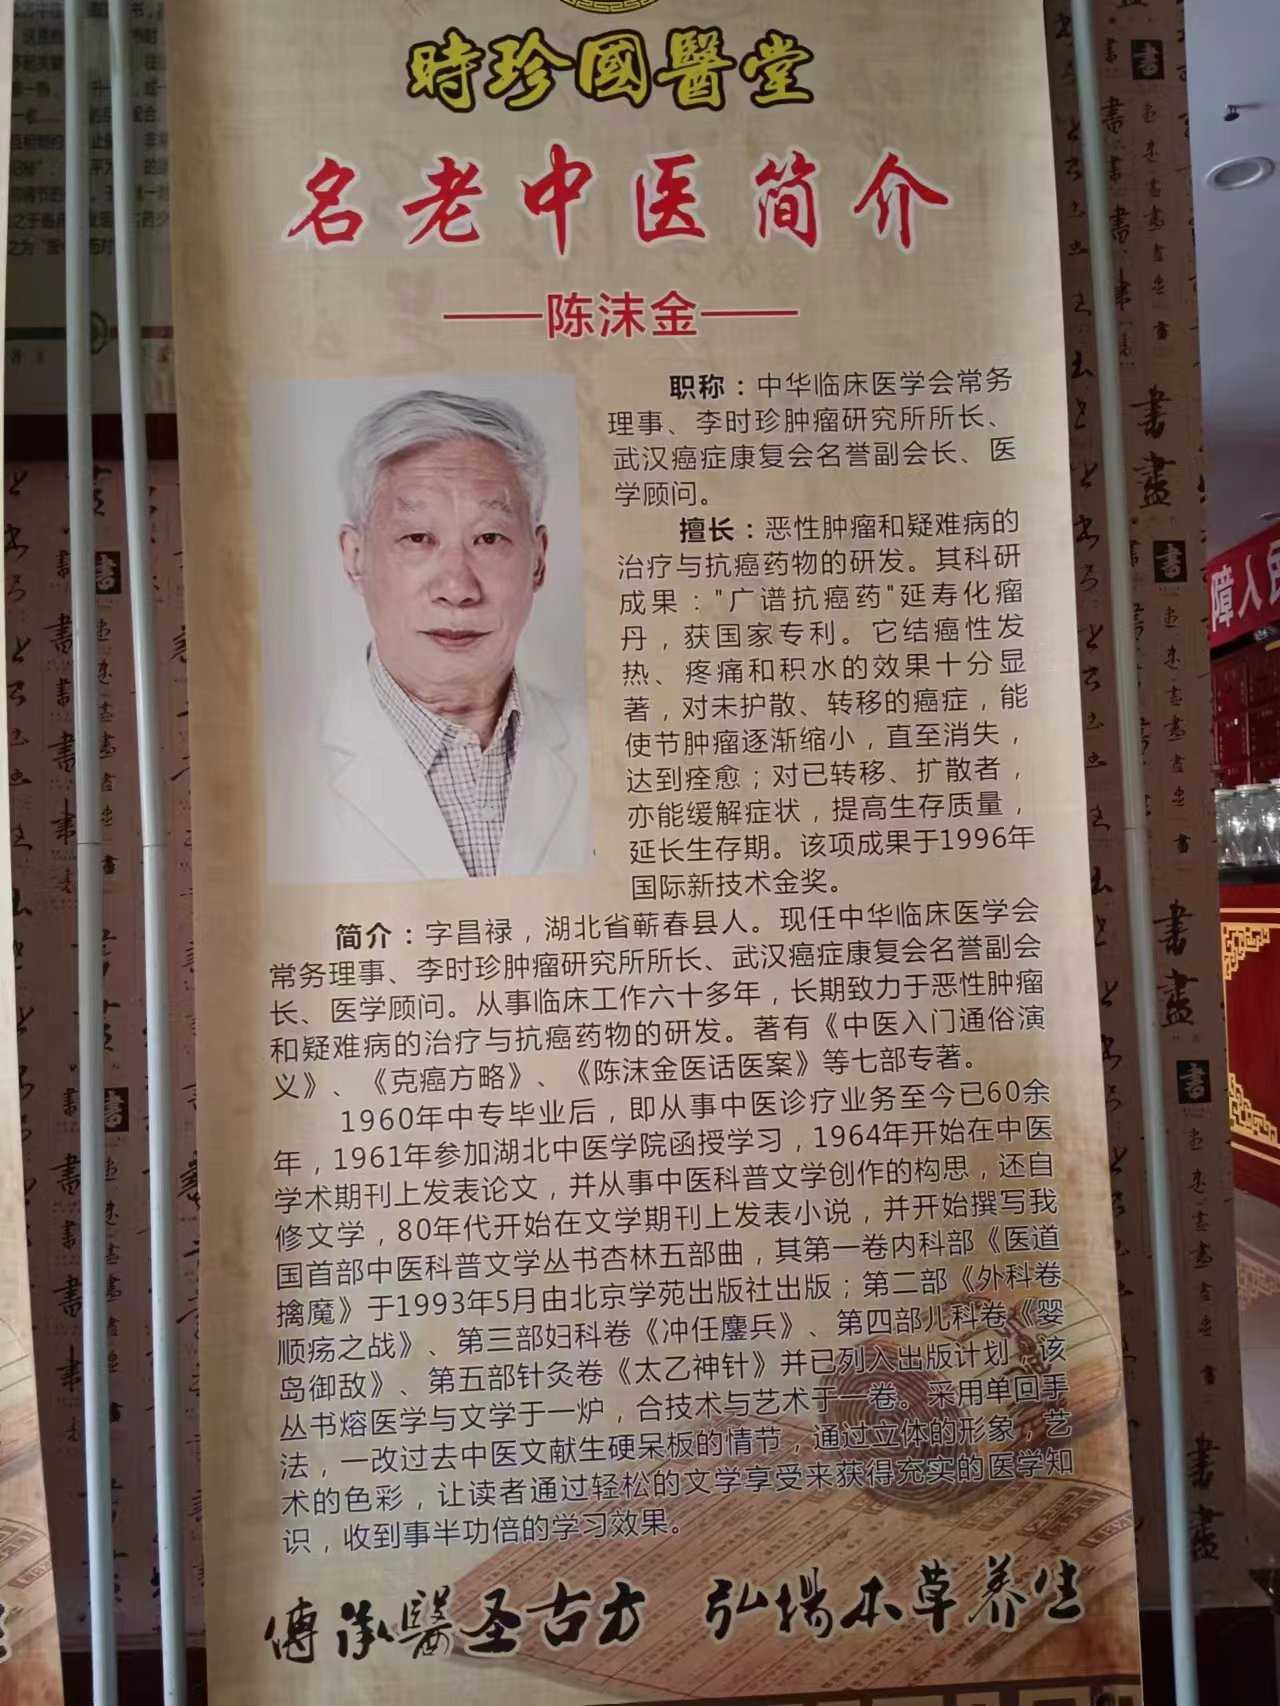 時珍國醫堂
名老中医简介
——陈沫金——
职称：中华临床医学会常务
理事、李时珍肿瘤研究所所长、
武汉癌症康复会名誉副会长、医
学顾问。
擅长：恶性肿瘤和疑难病的
治疗与抗癌药物的研发。其科研
成果："广谱抗癌药"延寿化瘤
丹，获国家专利。它结癌性发
热、疼痛和积水的效果十分显
著，对未护散、转移的癌症，能
使节肿瘤逐渐缩小，直至消失，
达到痊愈；对已转移、扩散者，
亦能缓解症状，提高生存质量，
延长生存期。该项成果于1996年
国际新技术金奖。
简介：字昌禄，湖北省蕲春县人。现任中华临床医学会
常务理事、李时珍肿瘤研究所所长、武汉癌症康复会名誉副会
长、医学顾问。从事临床工作六十多年，长期致力于恶性肿瘤
和疑难病的治疗与抗癌药物的研发。著有《中医入门通俗演
义》、《克癌方略》、《陈沫金医话医案》等七部专著。
1960年中专毕业后，即从事中医诊疗业务至今已60余
年，1961年参加湖北中医学院函授学习，1964年开始在中医
学术期刊上发表论文，并从事中医科普文学创作的构思，还自
修文学，80年代开始在文学期刊上发表小说，并开始撰写我
国首部中医科普文学丛书杏林五部曲，其第一卷内科部《医道
擒魔》于1993年5月由北京学苑出版社出版；第二部《外科卷
顺疡之战》、第三部妇科卷《冲任鏖兵》、第四部儿科卷《婴
岛御敌》、第五部针灸卷《太乙神针》并已列入出版计划，该
丛书熔医学与文学于一炉，合技术与艺术于一卷。采用单回手
法，一改过去中医文献生硬呆板的情节，通过立体的形象，艺
术的色彩，让读者通过轻松的文学享受来获得充实的医学知
识，收到事半功倍的学习效果。
傳承醫圣古方 弘揚本草养生
障人民